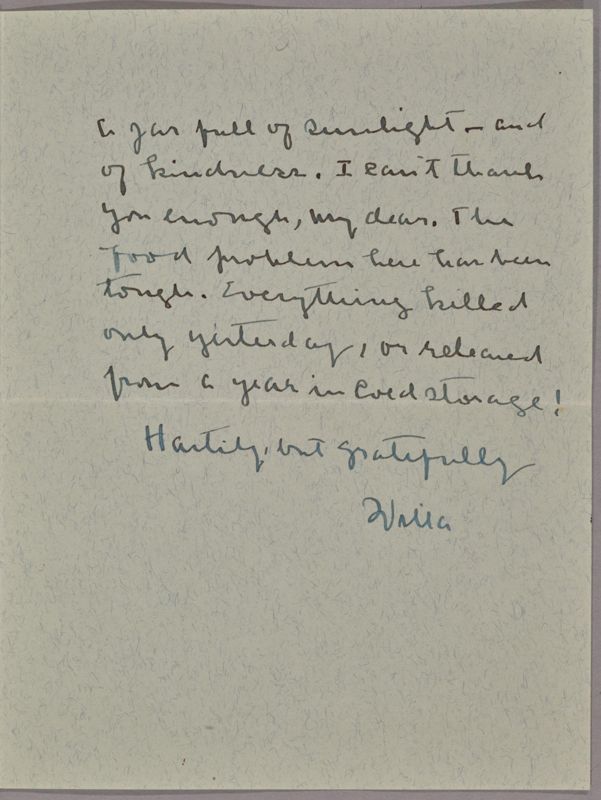 a jar full of sunlight – and
of kindness. I can't thank
you enough, my dear. The
food problem here has been
tough. Everything killed
only yesterday, or released
from a year in cold storage!
Hastily, but gratefully
Willa